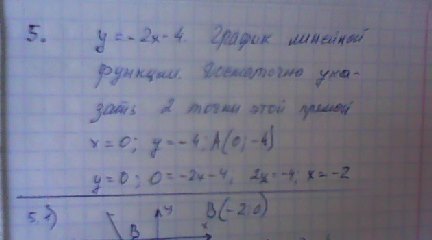 5. y = -2x-4. График линейной
функции. Достаточно ука-
зать 2 точки этой прямой
x=0; y=-4; A(0;-4)
y=0; 0=-2x-4, 2x=-4; x=-2
5.1) y B(-2;0)
B x